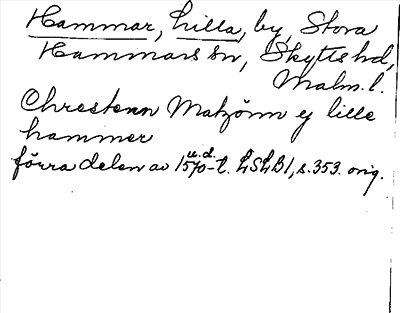 Hammar, Lilla, by, Stora
Hammars sn, Skytts hd,
Malm. l.
Chrestenn Matzönn ÿ lille
hammer
u.d.
förra delen av 1570-t. LSLB1, s. 353. orig.